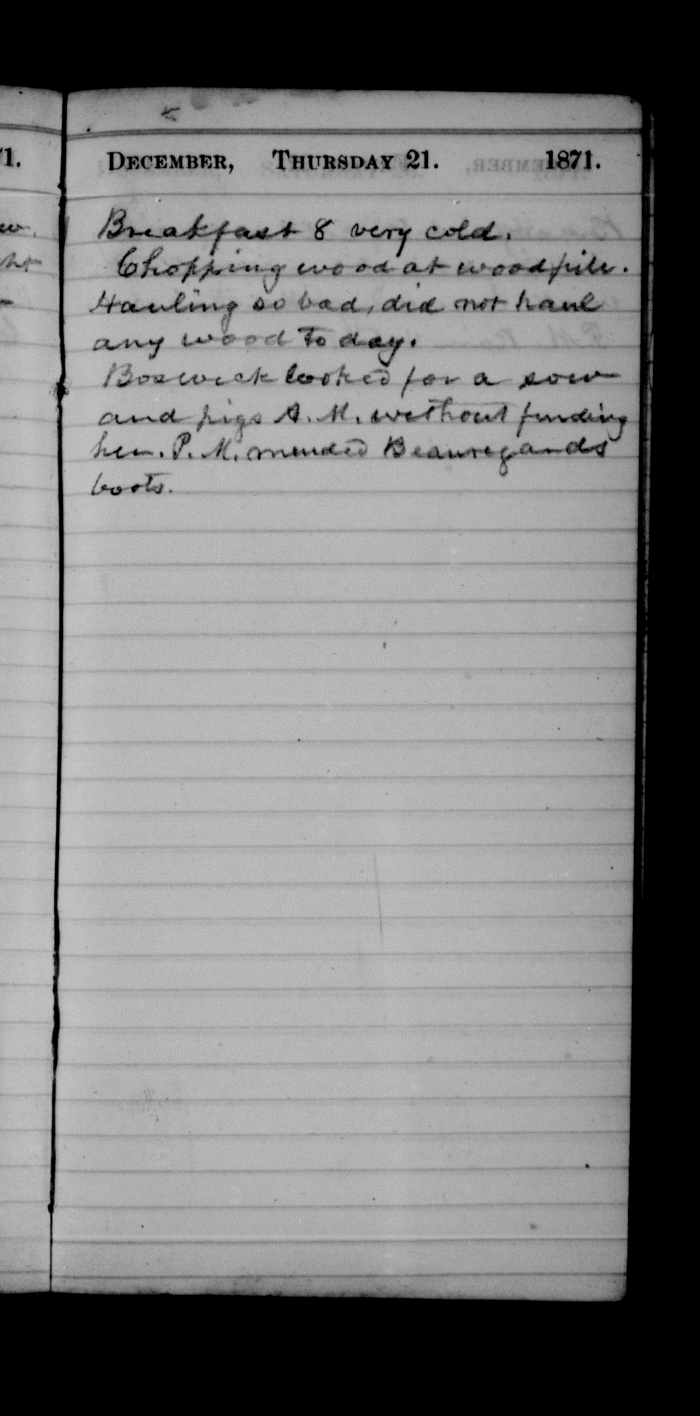 DECEMBER, THURSDAY 21. 1871.
Breakfast 8 very cold.
Chopping wood at woodpile.
Hauling so bad, did not haul
any wood To day.
Boswick looked for a sow
and pigs A. M. without finding
her. P. M. mended Beauregards
boots.